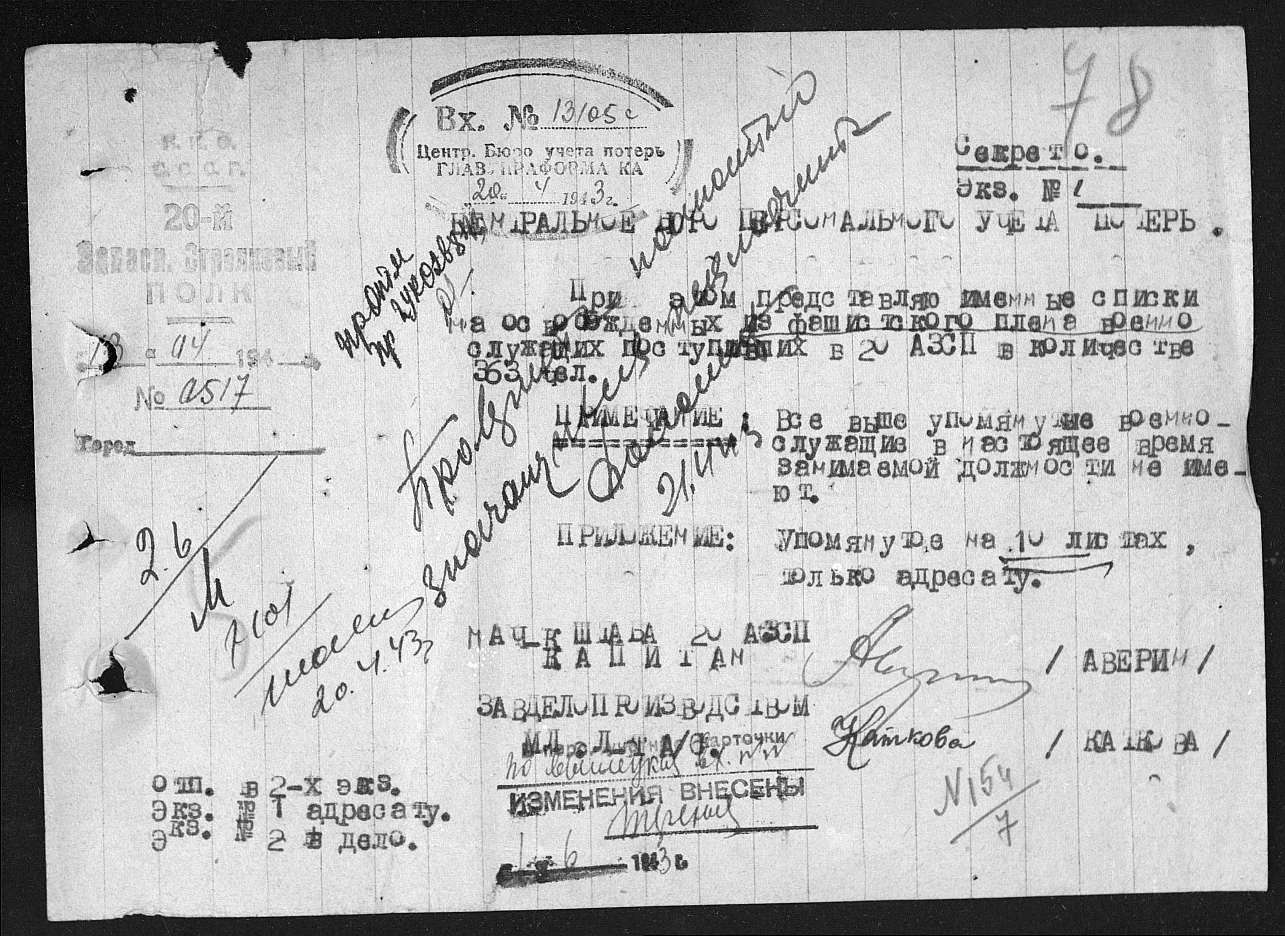 78
Вх. № 13105с
Центр. Бюро учета потерь
ГЛАВУПРАФОРМА КА
20. 4 1943 г.
Секретно.
Экз. № 1
Н.К.О.
С.С.С.Р.
20-й
Запасн. Стрелковый
ПОЛК
04 194
№ 0517
Город
ЦЕНТРАЛЬНОЕ БЮРО ПЕРСОНАЛЬНОГО УЧЕТА ПОТЕРЬ.
При этом представляю именные списки
на освобожденных из фашистского плена военно
служащих поступивших в 20 АЗСП в количестве
363 чел.
ПРИМЕЧАНИЕ: Все выше упомянутые военно-
служащие в настоящее время
занимаемой должности не име-
ют.
ПРИЛОЖЕНИЕ: Упомянутое на 10 листах,
только адресату.
21.4.43
2.6
20.4.43г
НАЧ-К ШТАБА 20 АЗСП
КАПИТАН / АВЕРИН /
ЗАВДЕЛОПРОИЗВОДСТВОМ
МЛ. Л-Т А/С. Каткова / КАТКОВА /
карточки
ИЗМЕНЕНИЯ ВНЕСЕНЫ
6 1943 г.
N154
7
отп. в 2-х экз.
Экз. № 1 адресату.
Экз. № 2 в дело.